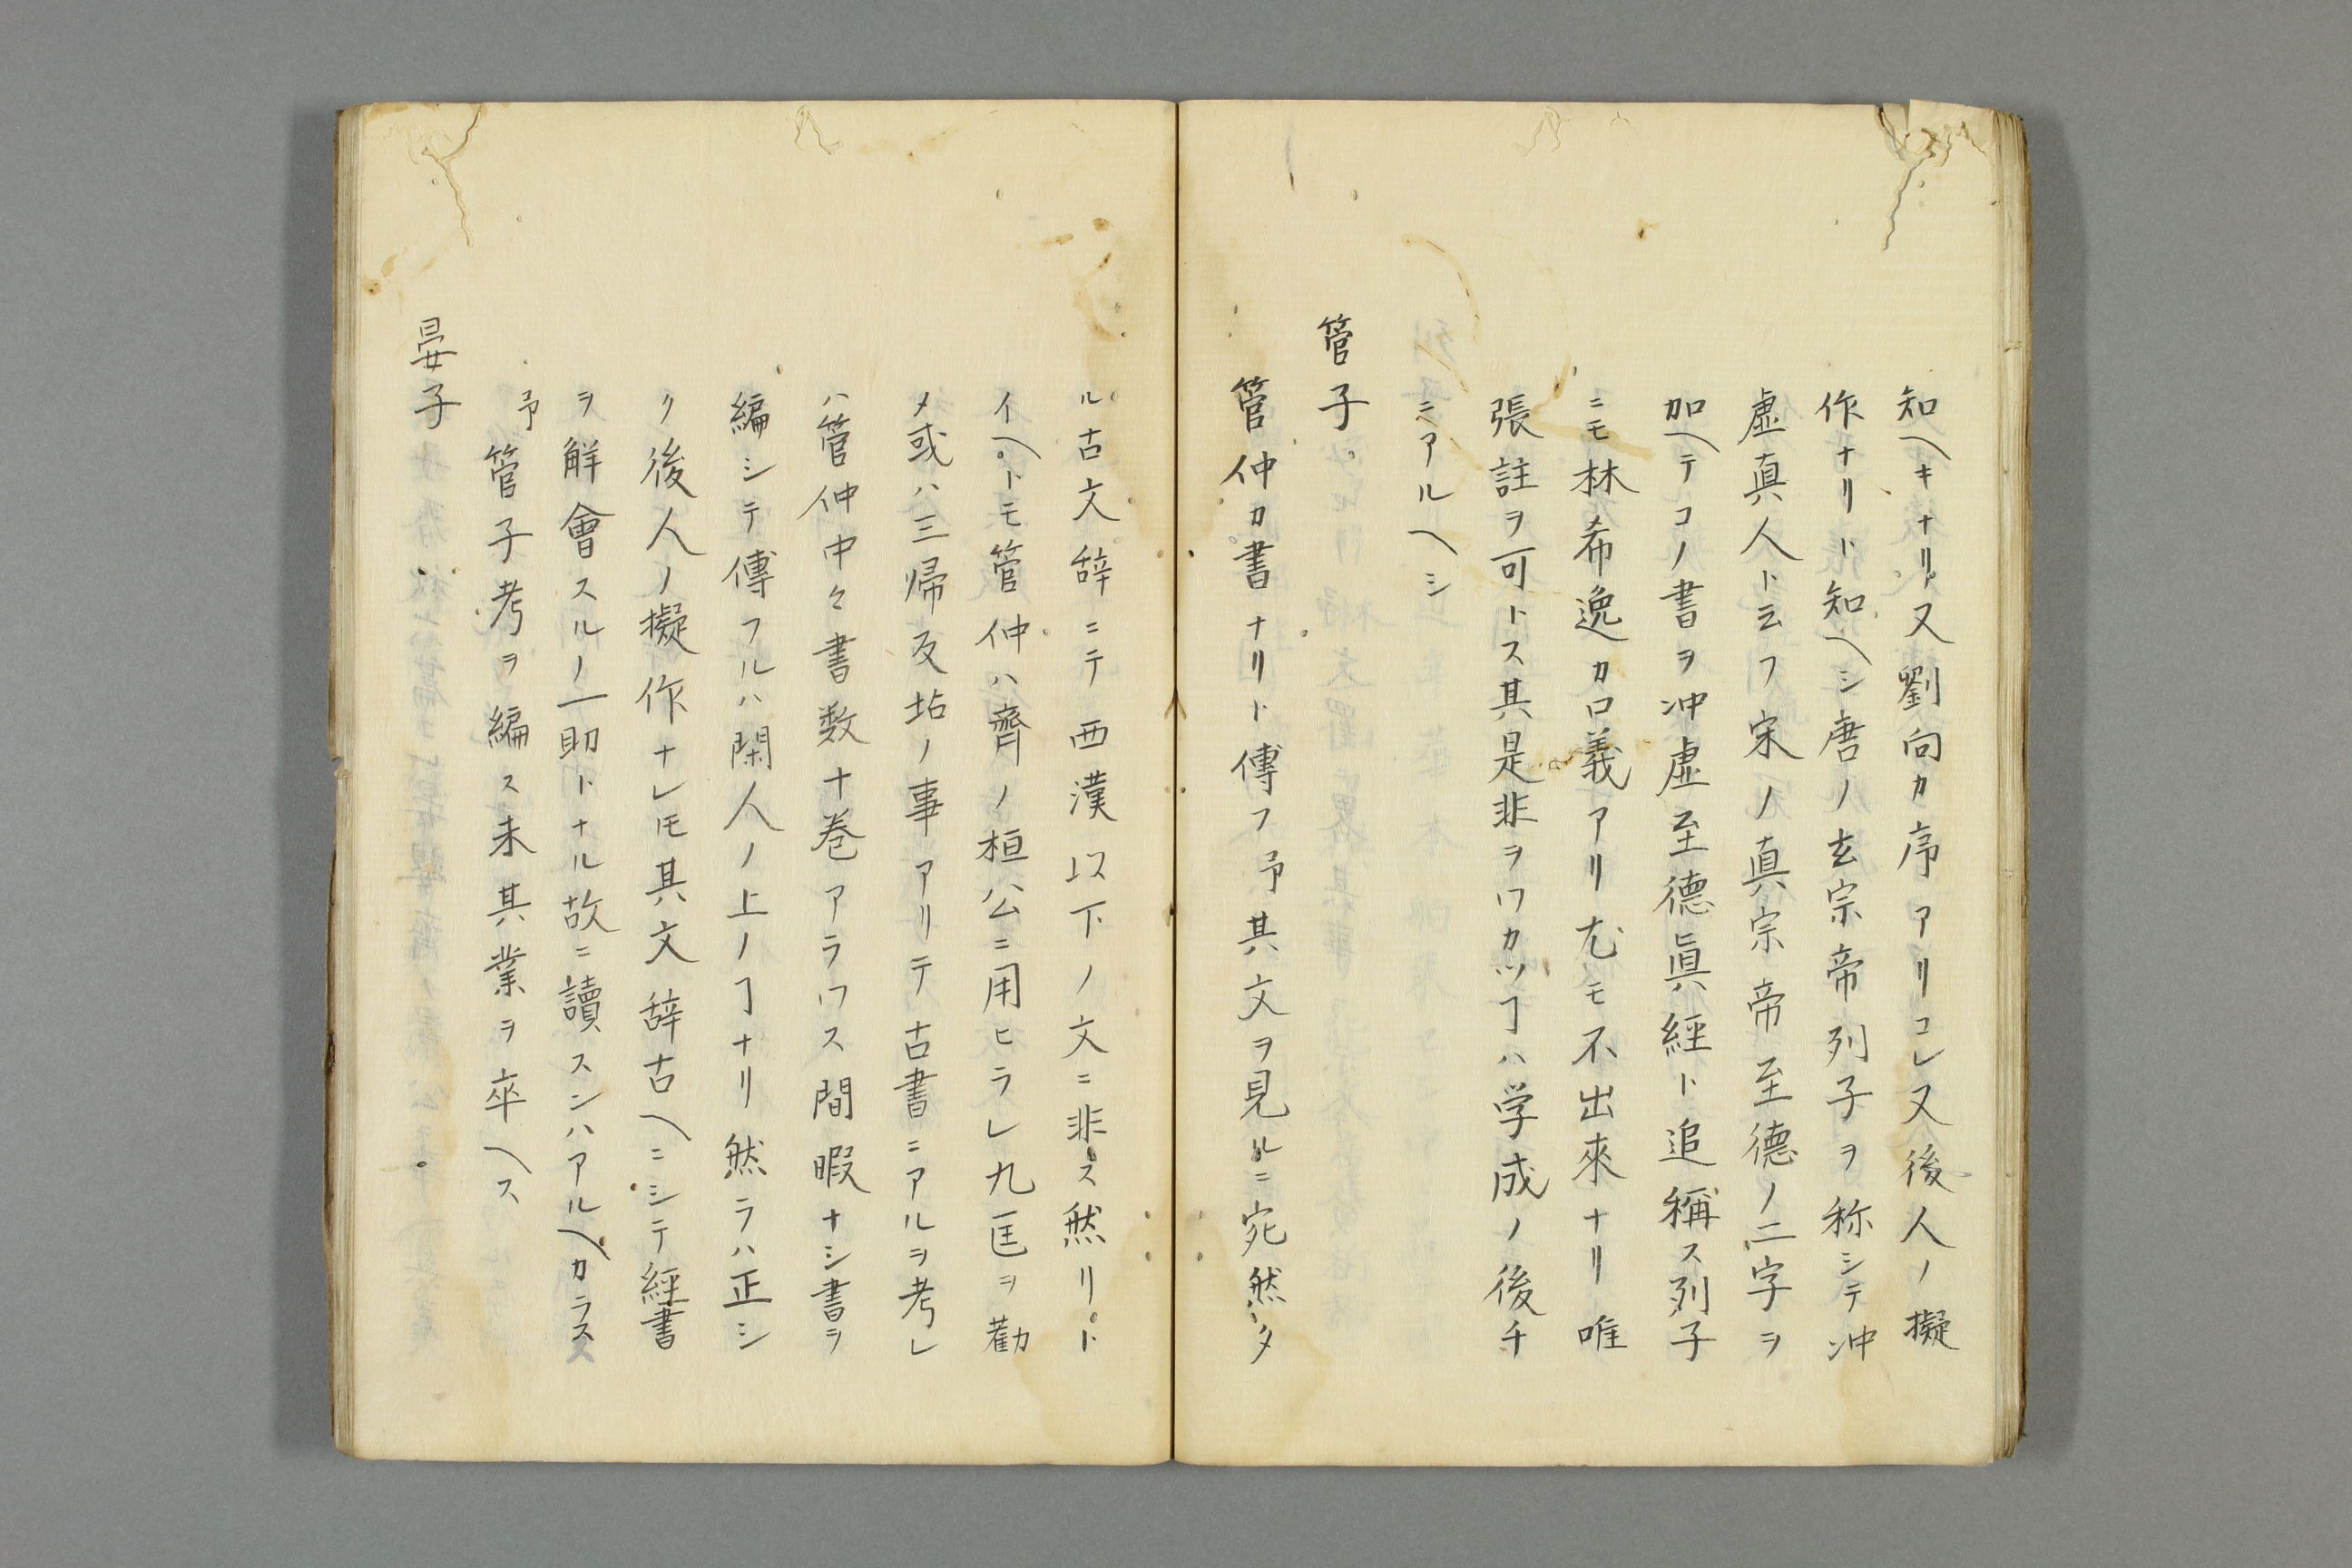 知ヘキナリ又劉向カ序アリコレ又後人ノ擬
作ナリト知ヘシ唐ノ玄宗帝列子ヲ称シテ冲
虚真人ト云フ宋ノ真宗帝至德ノ二字ヲ
加ヘテコノ書ヲ冲虚至德眞經ト追稱ス列子
ニモ林希逸カ口義アリ尤モ不出來ナリ唯
張註ヲ可トス其是非ヲワカツヿハ学成ノ後チ
ニアルヘシ
管子
管仲カ書ナリト傳フ予其文ヲ見ルニ宛然タ
ル古文辞ニテ西漢以下ノ文ニ非ス然リト
イヘトモ管仲ハ齊ノ桓公ニ用ヒラレ九匡ヲ勸
メ或ハ三帰反坫ノ事アリテ古書ニアルヲ考レ
ハ管仲中々書数十巻アラワス間暇ナシ書ヲ
編シテ傳フルハ閑人ノ上ノヿナリ然ラハ正シ
ク後人ノ擬作ナレ𪜈其文辞古ヘニシテ經書
ヲ解會スルノ一助トナル故ニ讀スンハアルヘカラス
予管子考ヲ編ス未其業ヲ卒ヘス
晏子